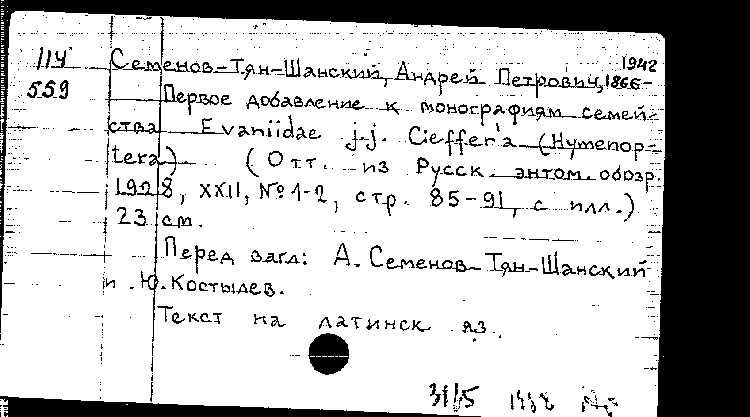 1942
114 Семенов-Тян-Шанский, Андрей Петрович, 1866-
559 Первое добавление к монографиям семей-
ства Evaniidae j.j. Cieffer'a (Hymenop-
tera). (Отт. из Русск. энтом. обозр.
1928, XXII, № 1-2, стр. 85-91, с илл.)
23 см.
Перед загл: А. Семенов-Тян-Шанский
и Ю. Костылев.
Текст на латинск яз.